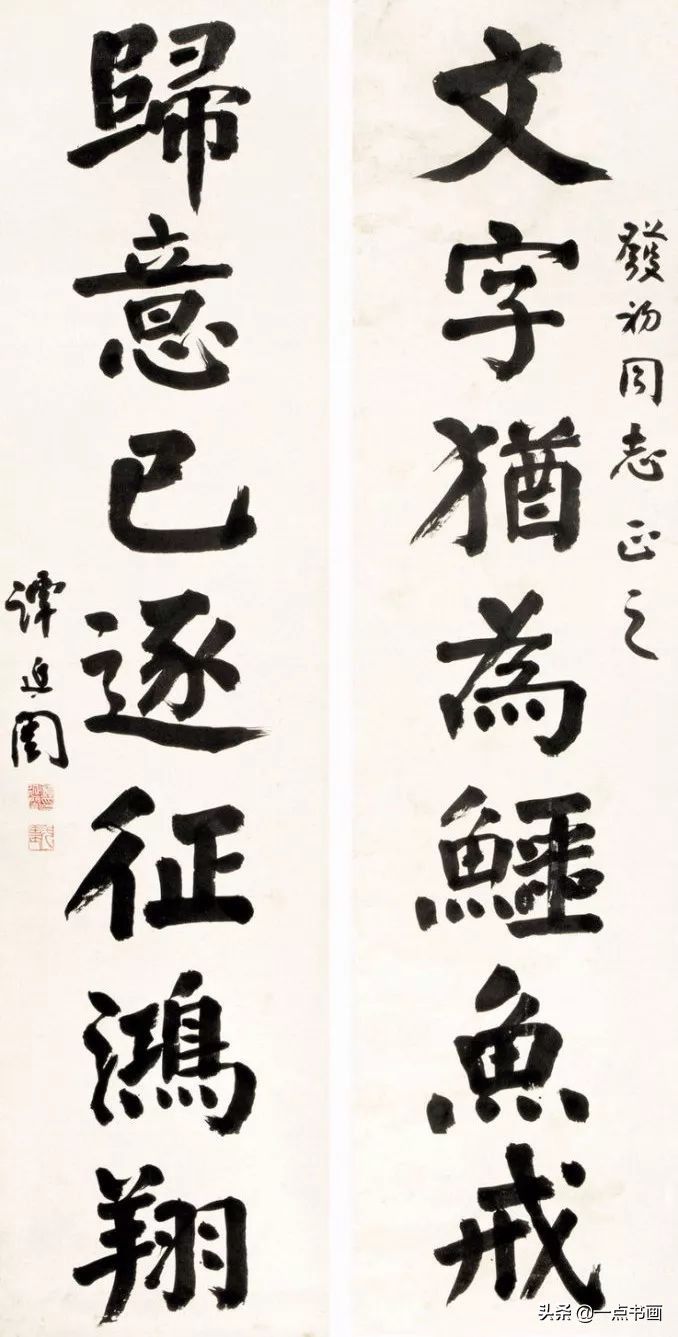 發初同志正之
文字猶為鱷魚戒
歸意已逐征鴻翔
譚延闓
头条 @一点书画